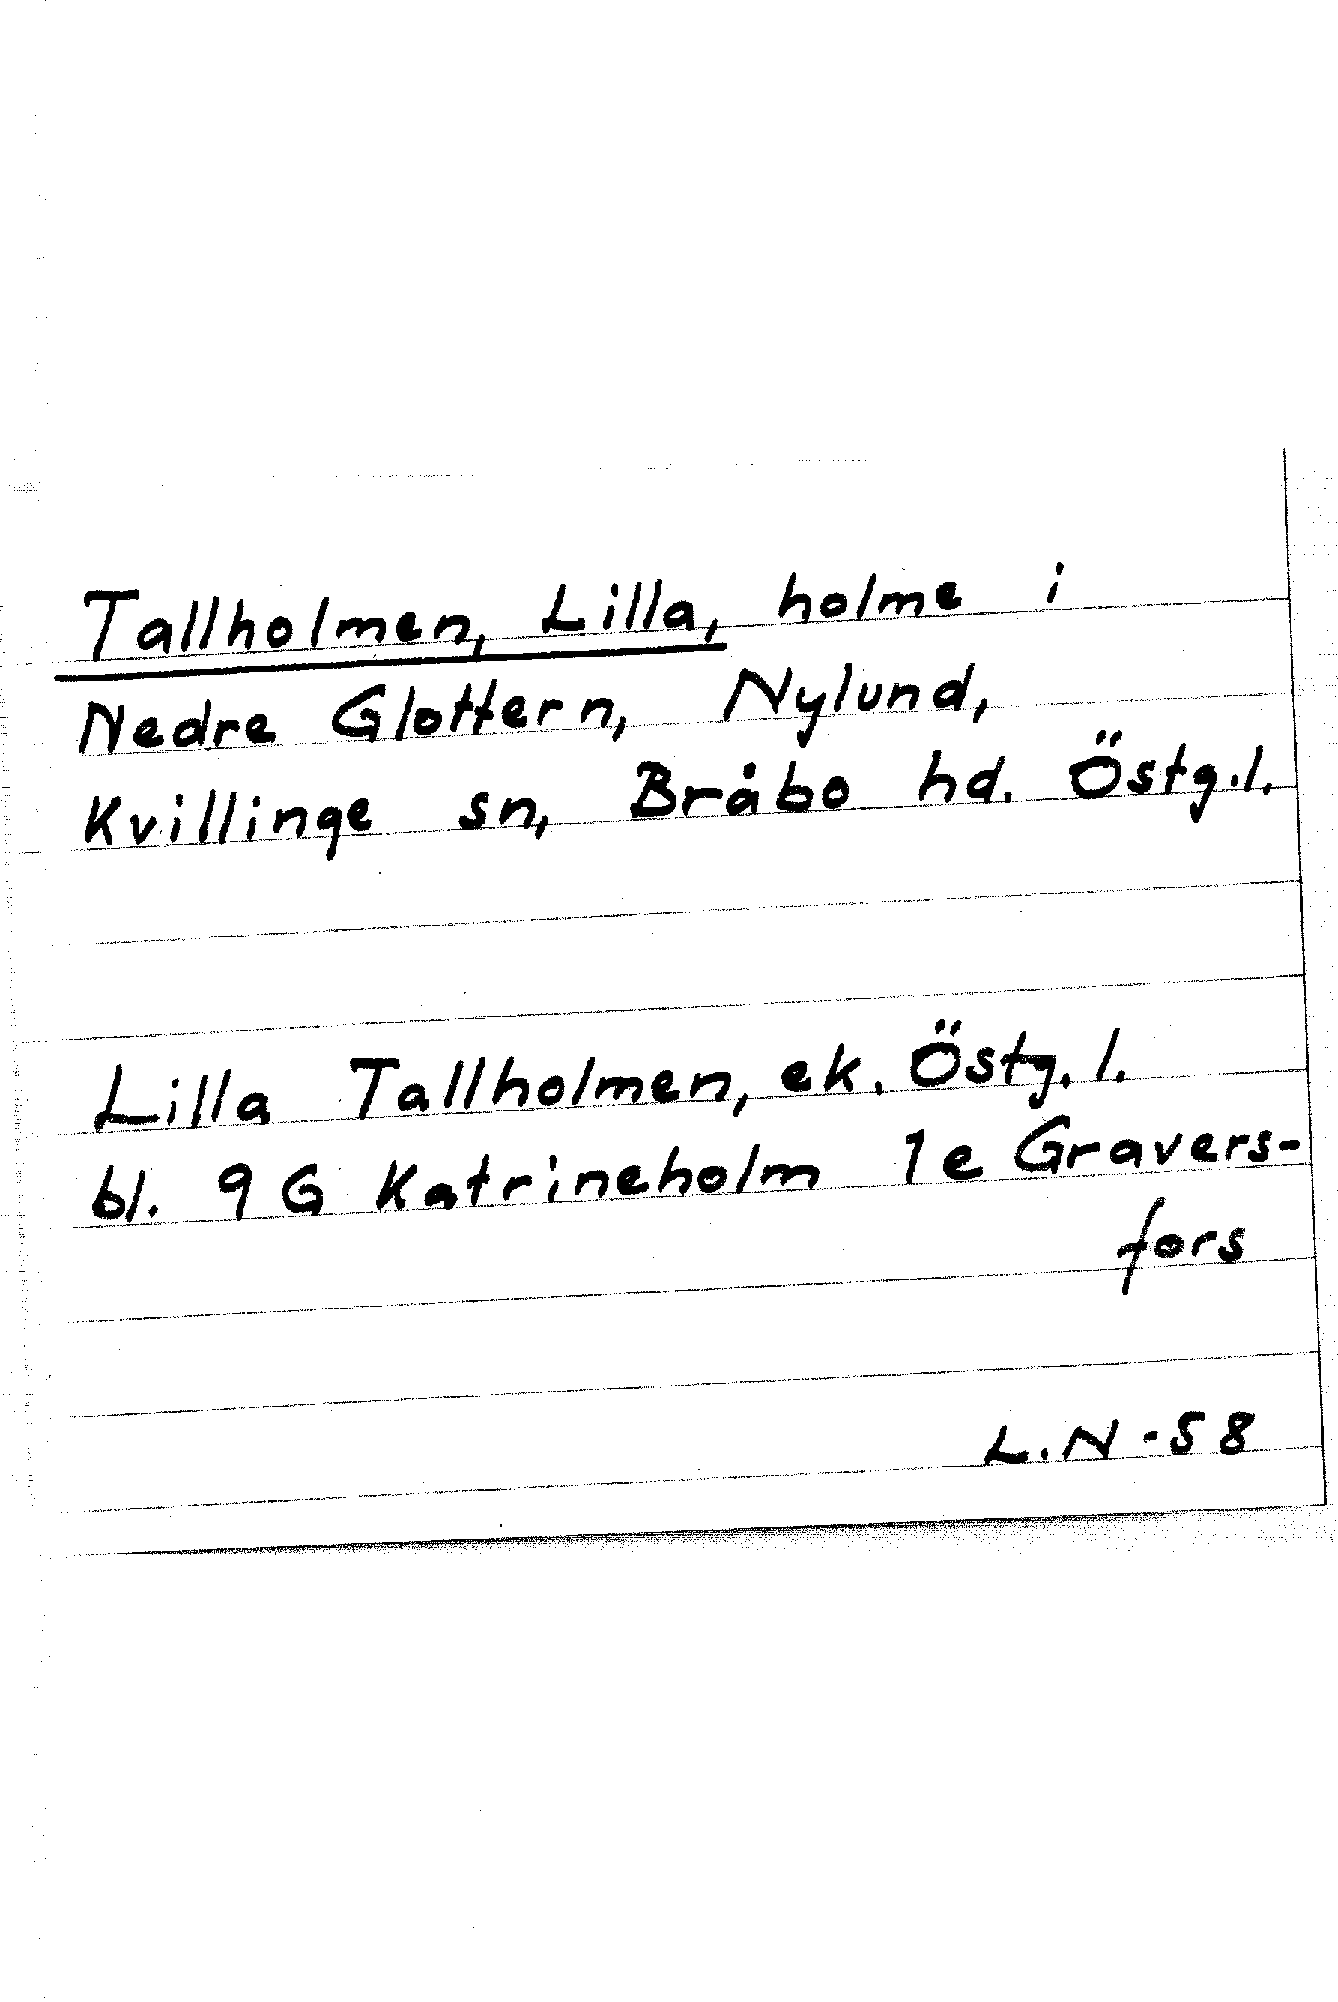 Tallholmen, Lilla, holme i
Nedre Glottern, Nylund,
Kvillinge sn, Bråbo hd. Östg.l.
Lilla Tallholmen, ek. Östg.l.
bl. 9G Katrineholm 1e Gravers-
fors
L.N -58